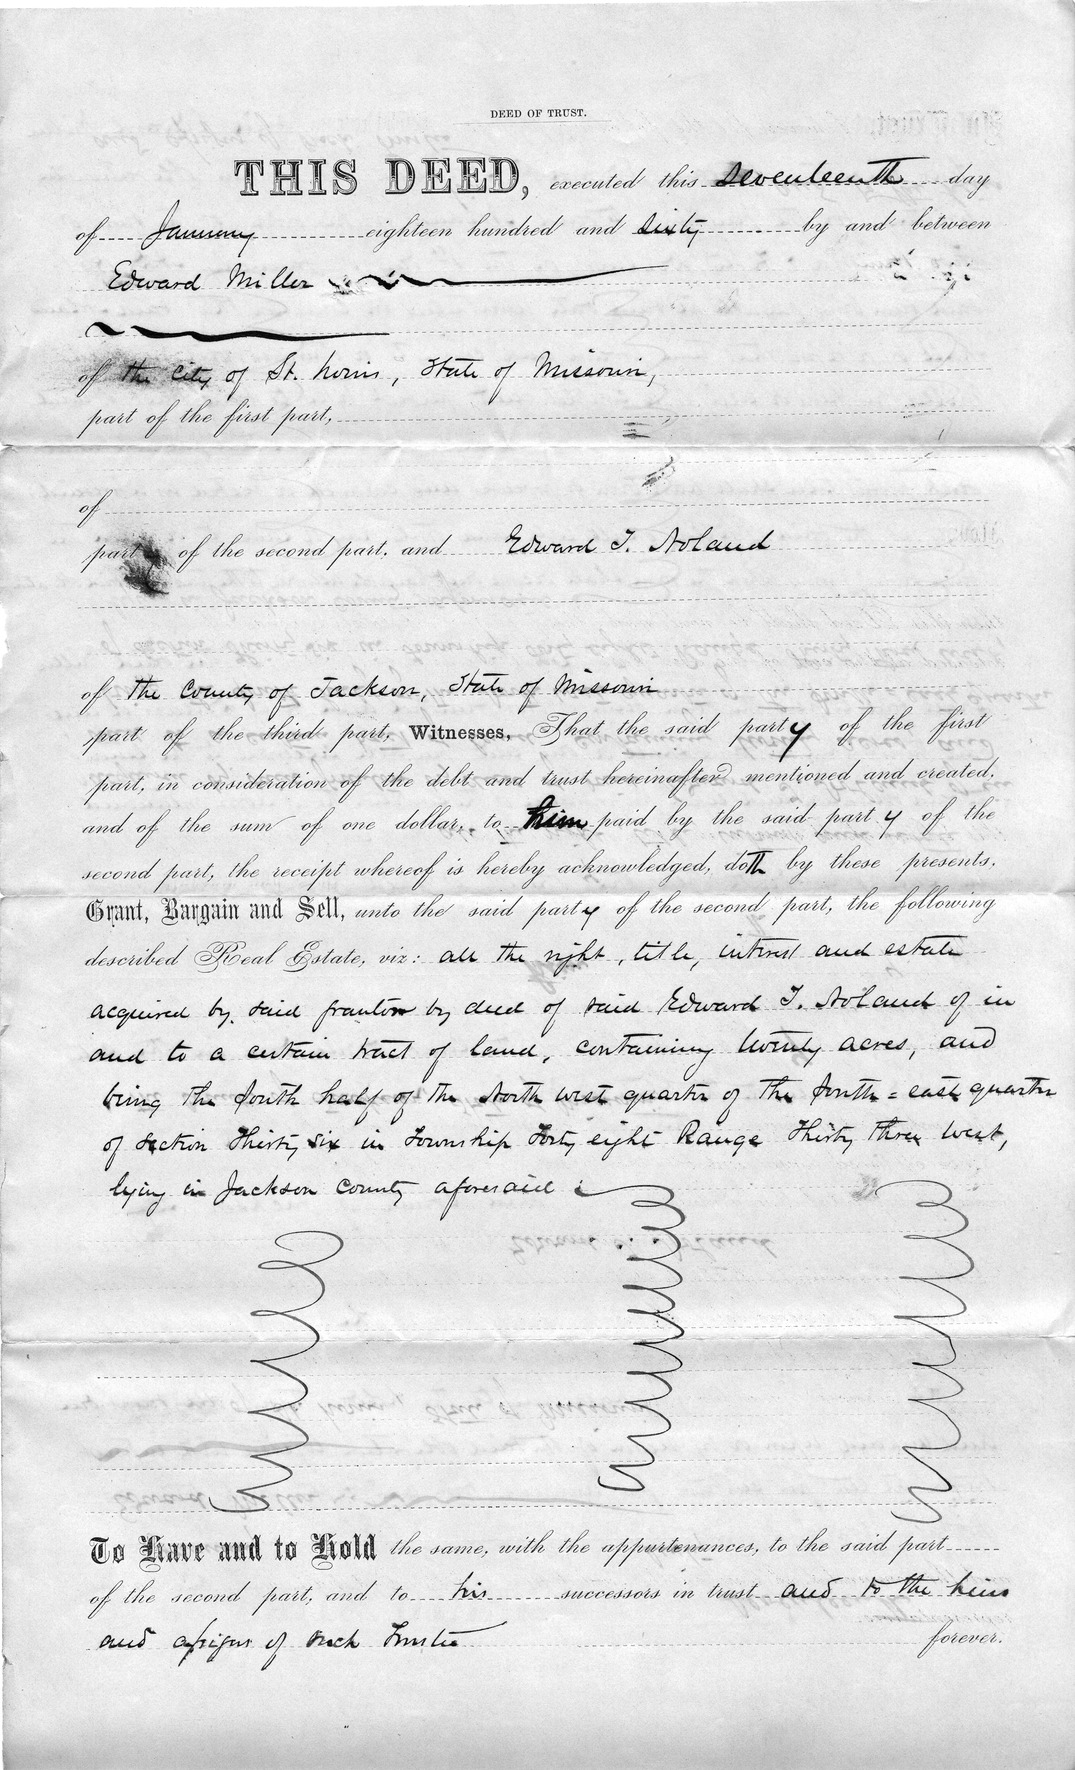 DEED OF TRUST.
THIS DEED, executed this seventeenth day
of January eighteen hundred and sixty by and between
Edward Miller
of the City of St. Louis, State of Missouri,
part of the first part,
of
party of the second part, and Edward T. Noland
of the County of Jackson, State of Missouri
part of the third part, Witnesses, That the said party of the first
part, in consideration of the debt and trust hereinafter mentioned and created,
and of the sum of one dollar, to him paid by the said party of the
second part, the receipt whereof is hereby acknowledged, doth by these presents,
Grant, Bargain and Sell, unto the said party of the second part, the following
described Real Estate, viz: all the right, title, interest and estate
acquired by said grantor by deed of said Edward T. Noland of in
and to a certain tract of land, containing twenty acres, and
being the South half of the North west quarter of the South = east quarter
of Section Thirty six in Township Forty eight Range Thirty three west,
lying in Jackson County aforesaid
To Have and to Hold the same, with the appurtenances, to the said part
of the second part, and to his successors in trust and to the heirs
and assigns of such Trustee forever.